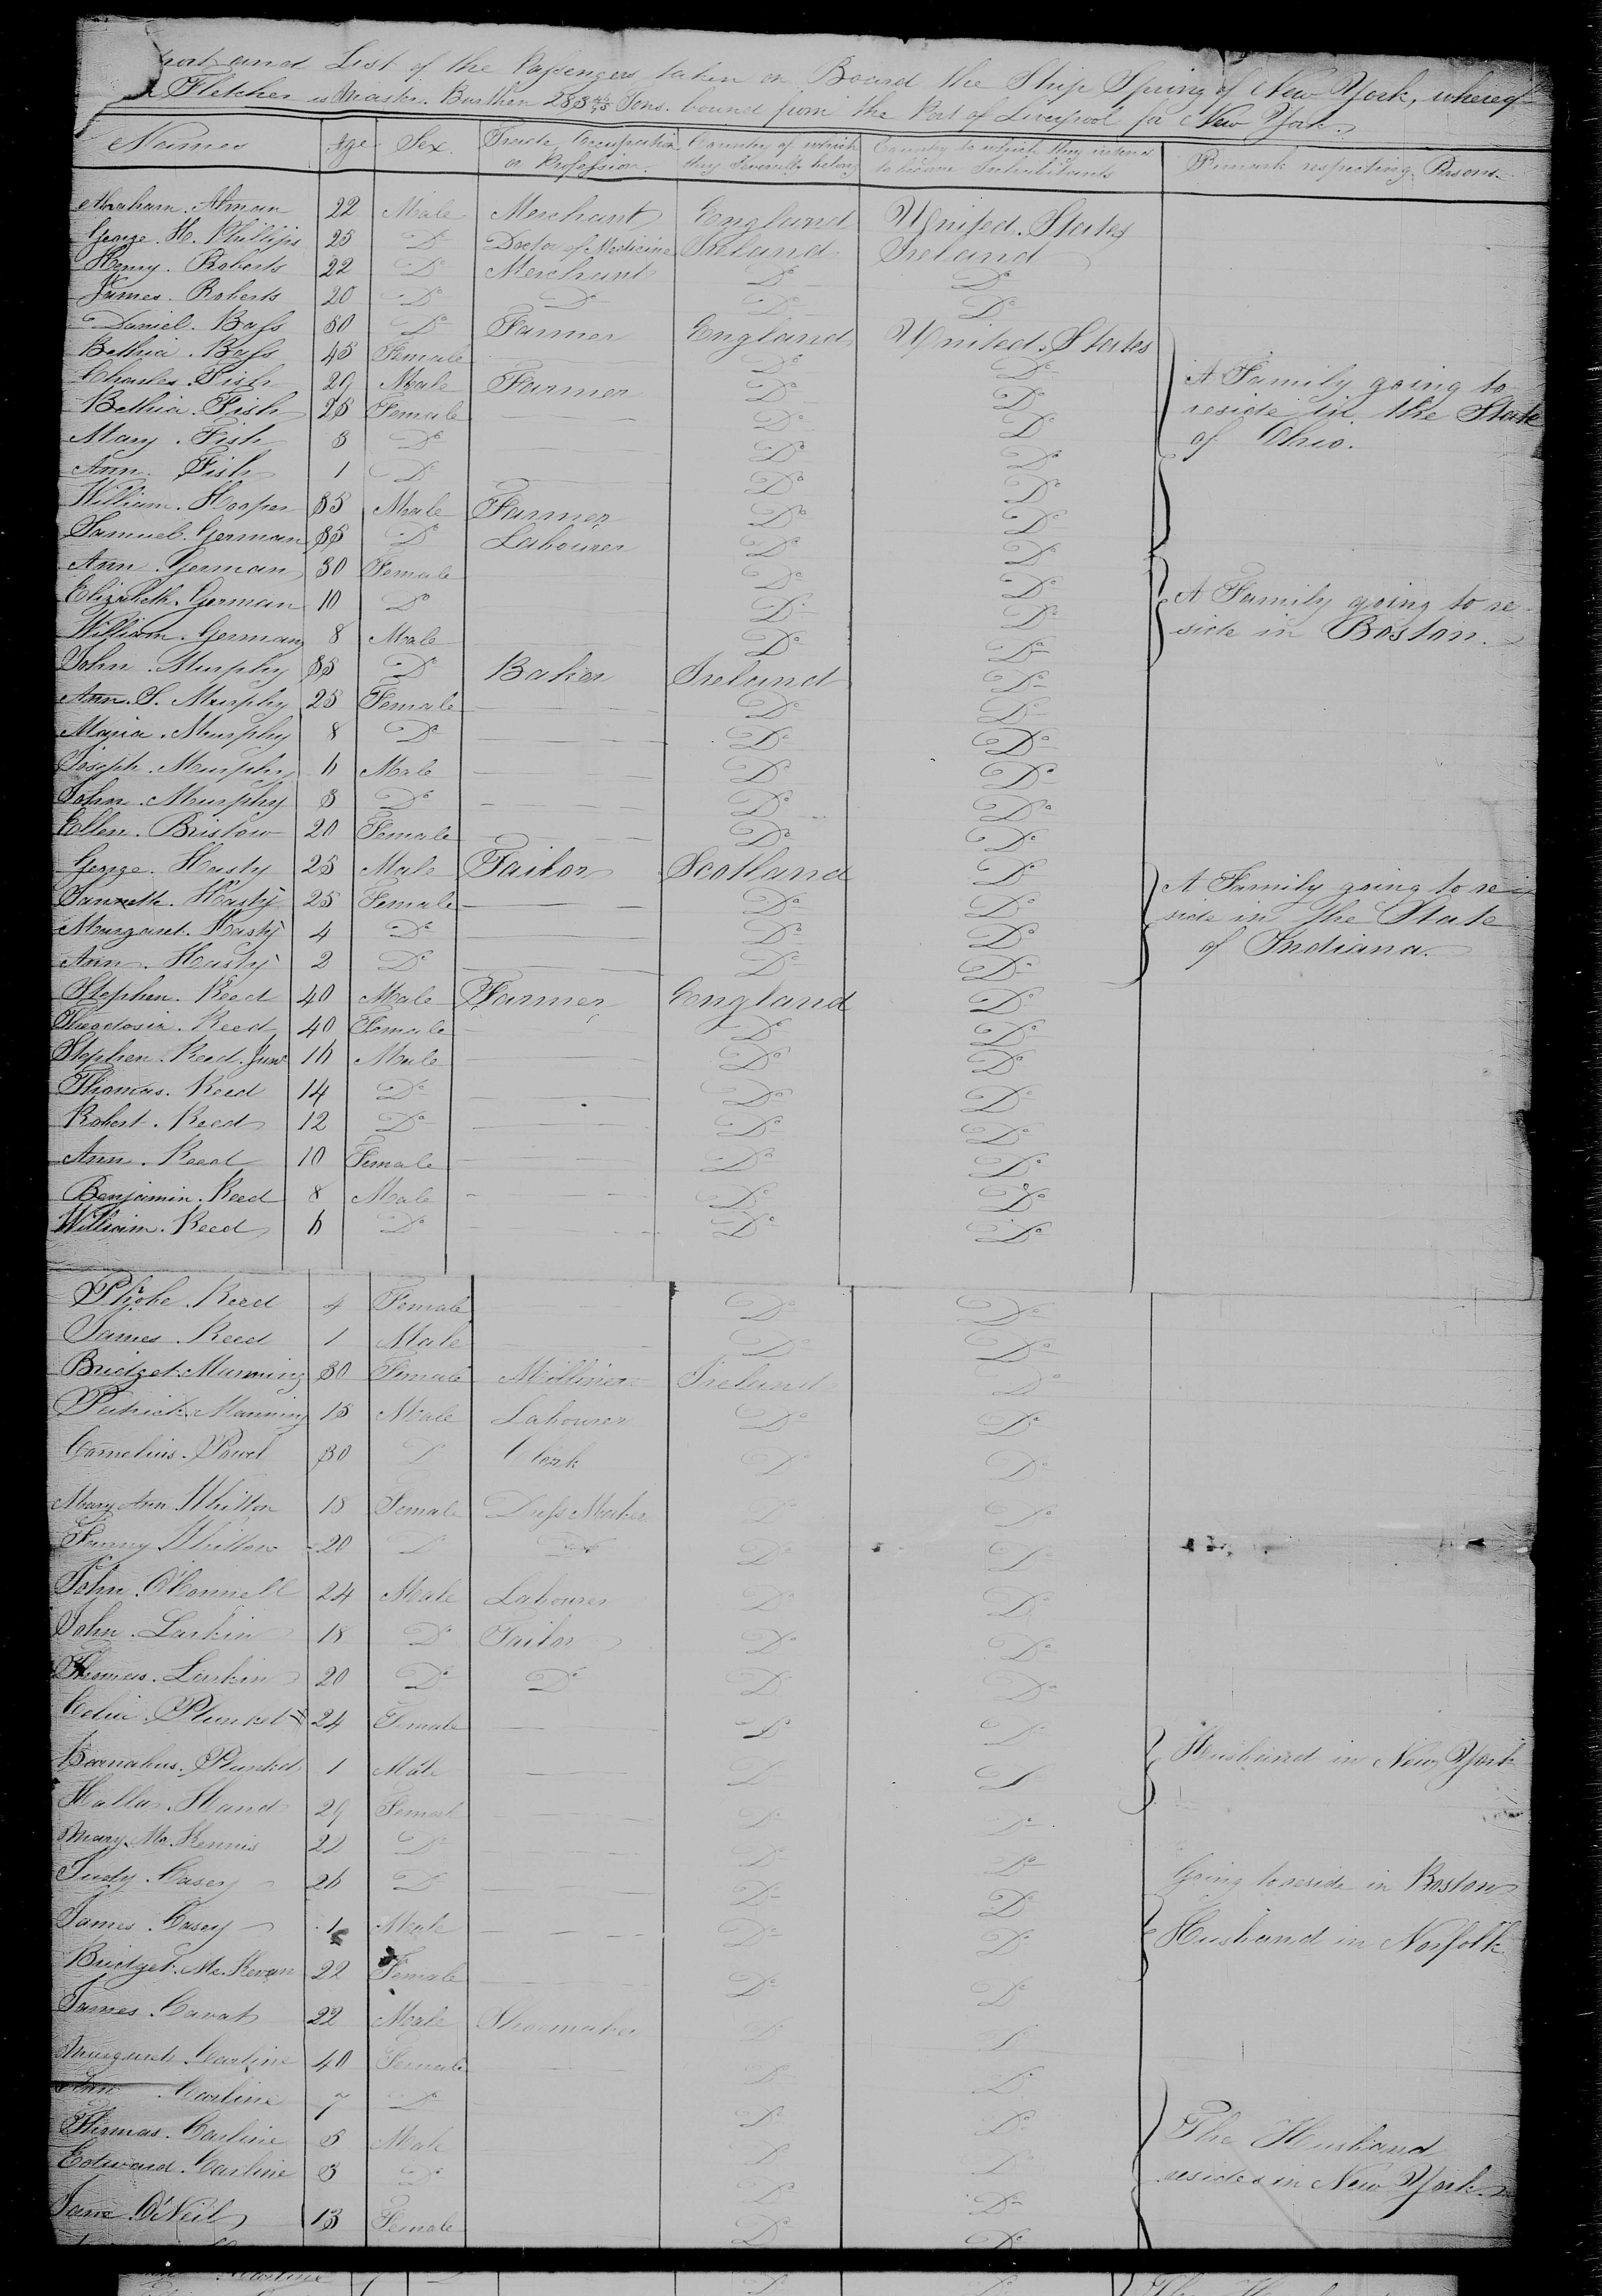 and List of the Passengers taken on Board the Ship Spring of New York, whereof
Fletcher is Master. Burthen Tons. bound from the Port of Liverpool for New York.
Names Age Sex. Trade, Occupation or Profession. Country of which they severally belong Country to which they intend to become Inhabitants Remark respecting Persons
Abraham. Alman 22 Male Merchant England United. States
George. H. Phillips 25 Do Doctor of Medicine Ireland Ireland
Henry. Roberts 22 Do Merchant Do Do
James. Roberts 20 Do Do Do Do
Daniel. Bass 50 Do Farmer England United. States
Bethia. Bass 45 Female Do Do
Charles. Fish 29 Male Farmer Do Do A Family going to
Bethia. Fish 25 Female Do Do reside in the State
Mary. Fish 3 Do Do Do of Ohio.
Ann. Fish 1 Do Do Do
William. Hooper 35 Male Farmer Do Do
Samuel. German 35 Do Labourer Do Do
Ann. German 30 Female Do Do
Elizabeth. German 10 Do Do Do A Family going to re-
William. German 8 Male Do Do side in Boston.
John. Murphy 35 Do Baker Ireland Do
Ann. S. Murphy 25 Female Do Do
Maria. Murphy 8 Do Do Do
Joseph. Murphy 6 Male Do Do
John. Murphy 3 Do Do Do
Ellen. Bristow 20 Female Do Do
George. Hasty 25 Male Tailor Scotland Do A Family going to re
Hasty 25 Female Do Do side in the State
Margaret. Hasty 4 Do Do Do of Indiana.
Ann. Hasty 2 Do Do Do
Stephen. Reed 40 Male Farmer England Do
Theodosia. Reed 40 Female Do Do
Stephen. Reed. Junr 16 Male Do Do
Thomas. Reed 14 Do Do Do
Robert. Reed 12 Do Do Do
Ann. Reed 10 Female Do Do
Benjamin. Reed 8 Male Do Do
William. Reed 6 Do Do Do
Phobe. Reed 4 Female Do Do
James. Reed 1 Male Do Do
Bridget. Manning 30 Female Milliner Ireland Do
Patrick. Manning 15 Male Labourer Do Do
Cornelius. Powel 30 D Clerk Do Do
Mary Ann Whitton 18 Female Dress Maker D Do
Fanny Whitton 20 D Do Do Do
John. O'Connell 24 Male Labourer Do Do
John. Larkin 18 Do Tailor Do Do
Thomas. Larkin 20 Do Do Do Do
Celia. Plunket 24 Female Do D
Barnabus. Plunket 1 Male Do D Husband in New York
Hand 29 Female Do Do
Mary. Mc. Kennis 22 Do Do Do
Judy. Casey 26 D Do Do Going to reside in Boston
James. Casey 1 Male Do Do Husband in Norfolk
Bridget. Mc. Kevan 22 Female Do Do
James. 22 Male Shoemaker D D
Margaret. Carline 40 Female D Do
Ann Carline 7 Do Do Do
Thomas. Carline 5 Male D Do The Husband
Edward. Carline 3 Do D Do resides in New York
Jane. O'Neil 13 Female Do Do